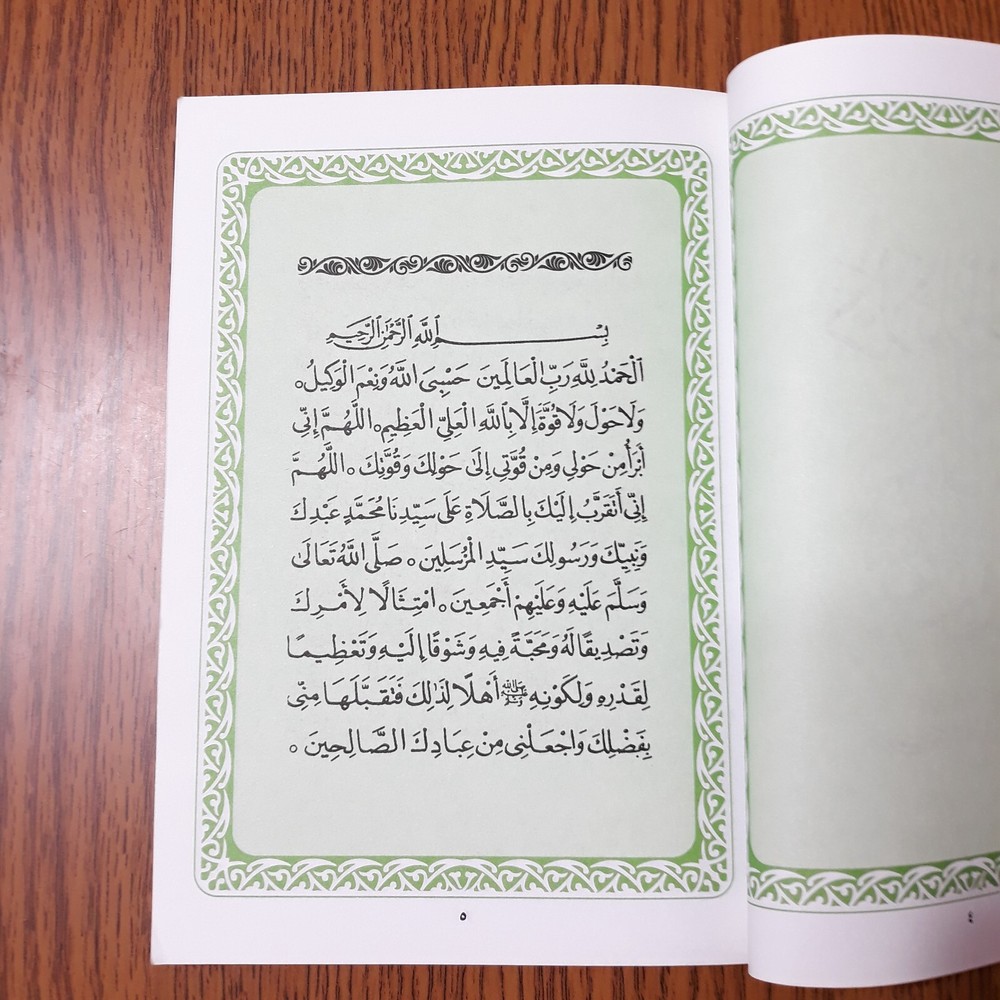 بِسْمِ ٱللَّهِ ٱلرَّحْمَٰنِ ٱلرَّحِيمِ
اَلْحَمْدُ لِلَّهِ رَبِّ الْعَالَمِينَ حَسْبِيَ اللَّهُ وَنِعْمَ الْوَكِيلُ ه
وَلَا حَوْلَ وَلَا قُوَّةَ إِلَّا بِاللَّهِ الْعَلِيِّ الْعَظِيمِ ه اللَّهُمَّ إِنِّي
أَبْرَأُ مِنْ حَوْلِي وَمِنْ قُوَّتِي إِلَى حَوْلِكَ وَقُوَّتِكَ ه اللَّهُمَّ
إِنِّي أَتَقَرَّبُ إِلَيْكَ بِالصَّلَاةِ عَلَى سَيِّدِنَا مُحَمَّدٍ عَبْدِكَ
وَنَبِيِّكَ وَرَسُولِكَ سَيِّدِ الْمُرْسَلِينَ ه صَلَّى اللَّهُ تَعَالَى
وَسَلَّمَ عَلَيْهِ وَعَلَيْهِمْ أَجْمَعِينَ ه امْتِثَالًا لِأَمْرِكَ
وَتَصْدِيقًا لَهُ وَمَحَبَّةً فِيهِ وَشَوْقًا إِلَيْهِ وَتَعْظِيمًا
لِقَدْرِهِ وَلِكَوْنِهِ ﷺ أَهْلًا لِذَٰلِكَ فَتَقَبَّلْهَا مِنِّي
بِفَضْلِكَ وَاجْعَلْنِي مِنْ عِبَادِكَ الصَّالِحِينَ ه
٥
٤